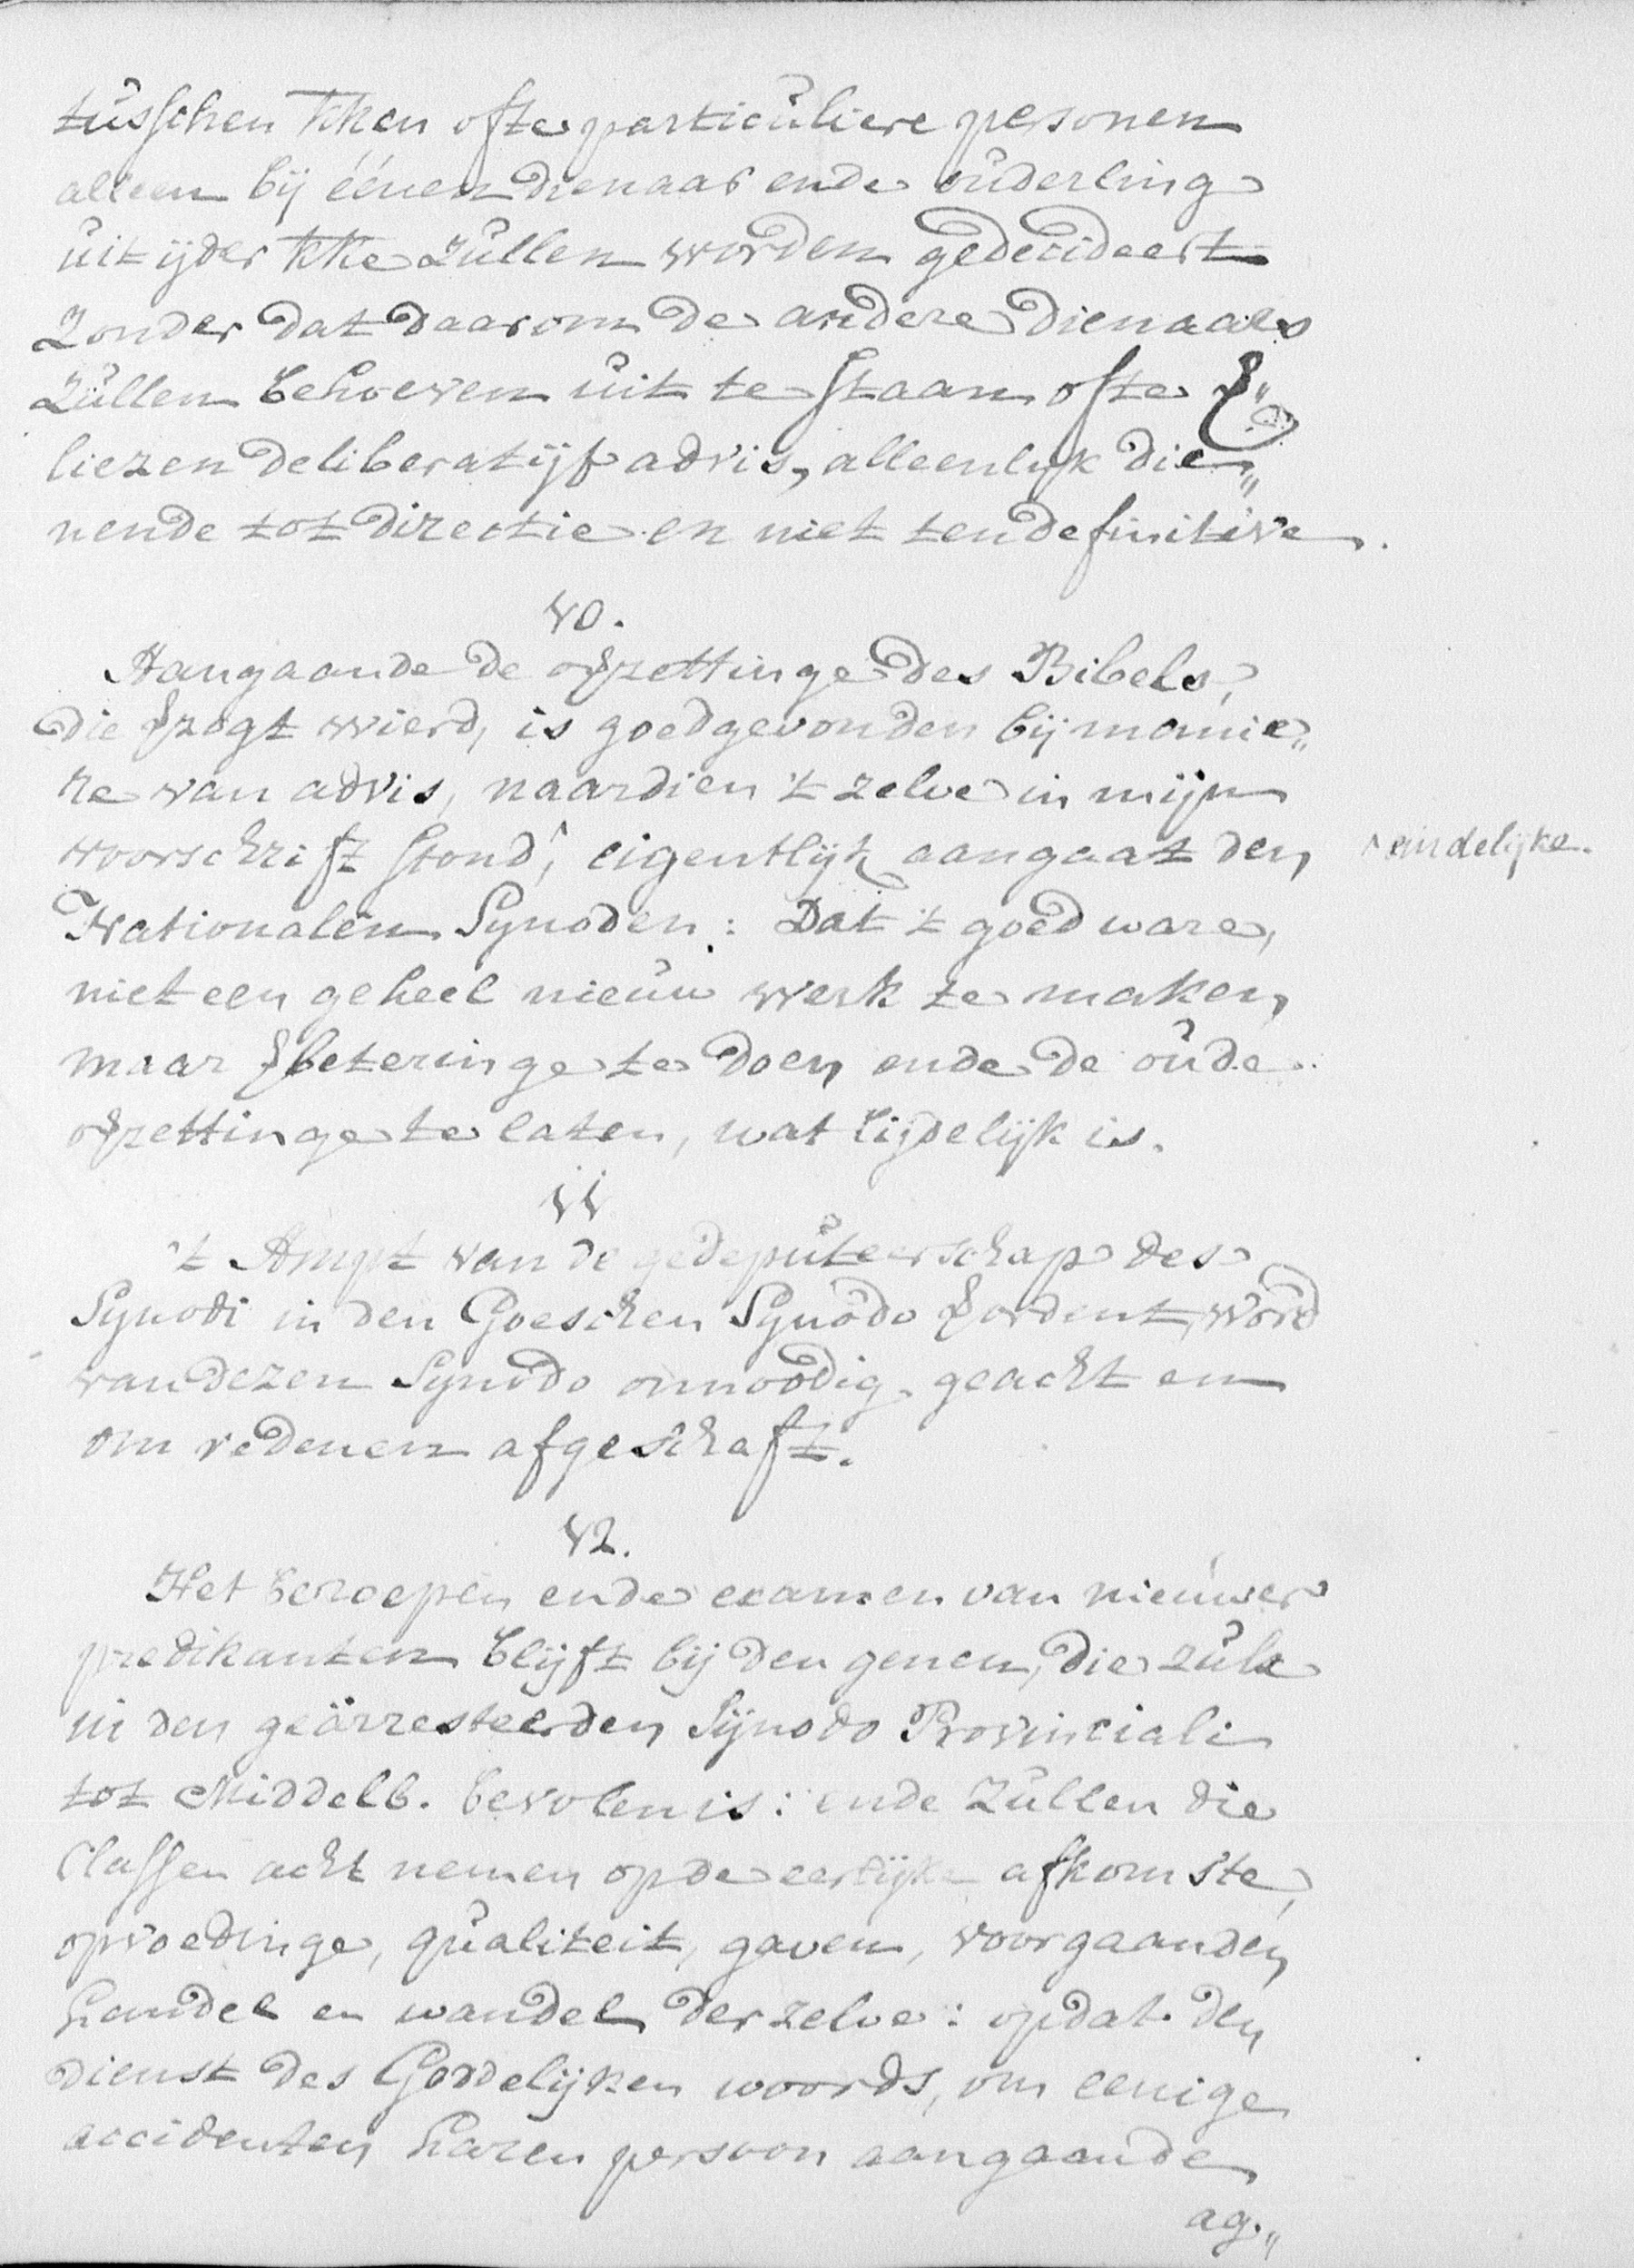 tusschen kken ofte particuliere personen
alleen bij éénen dienaar ende ouderling
uit ijder kke zullen worden gedecideert
Zonder dat daarom de andere dienaars
zullen behoeven uit te staan ofte ꝟ„
liezen deliberatijf advis, alleenlijk die„
nende tot directie en niet ten definitive.
40.
Aangaande de oꝟzettinge des Bibels,
die ꝟzogt wierd, is goedgevonden bij manie„
re van advis, naardien 't zelve in mijn
voorschrift stond, eigentlijk aangaat den
^ eindelijke.
Nationalen Synoden: Dat 't goed ware,
niet een geheel nieuw werk te maken,
maar ꝟbeteringe te doen ende de oude
oꝟzettinge te laten, wat lijdelijk is.
41
't Ampt van de gedeputeerschap des
Synodi in den Goeschen Synodo ꝟordent, word
van dezen Synodo onnoodig geacht en
om redenen afgeschaft.
42.
Het beroepen ende examen van nieuwer
predikanten blijft bij den genen, die zulx
in den geärresteerden Sijnodo Provinciali
tot Middelb. bevolen is: ende zullen die
Classen acht nemen op de eerlijke afkomste,
opvoedinge, qualiteit, gaven, voorgaanden
handel en wandel derzelve: opdat den
dienst des Goddelijken woords, om eenige
accidenten haren persoon aangaande
ag„